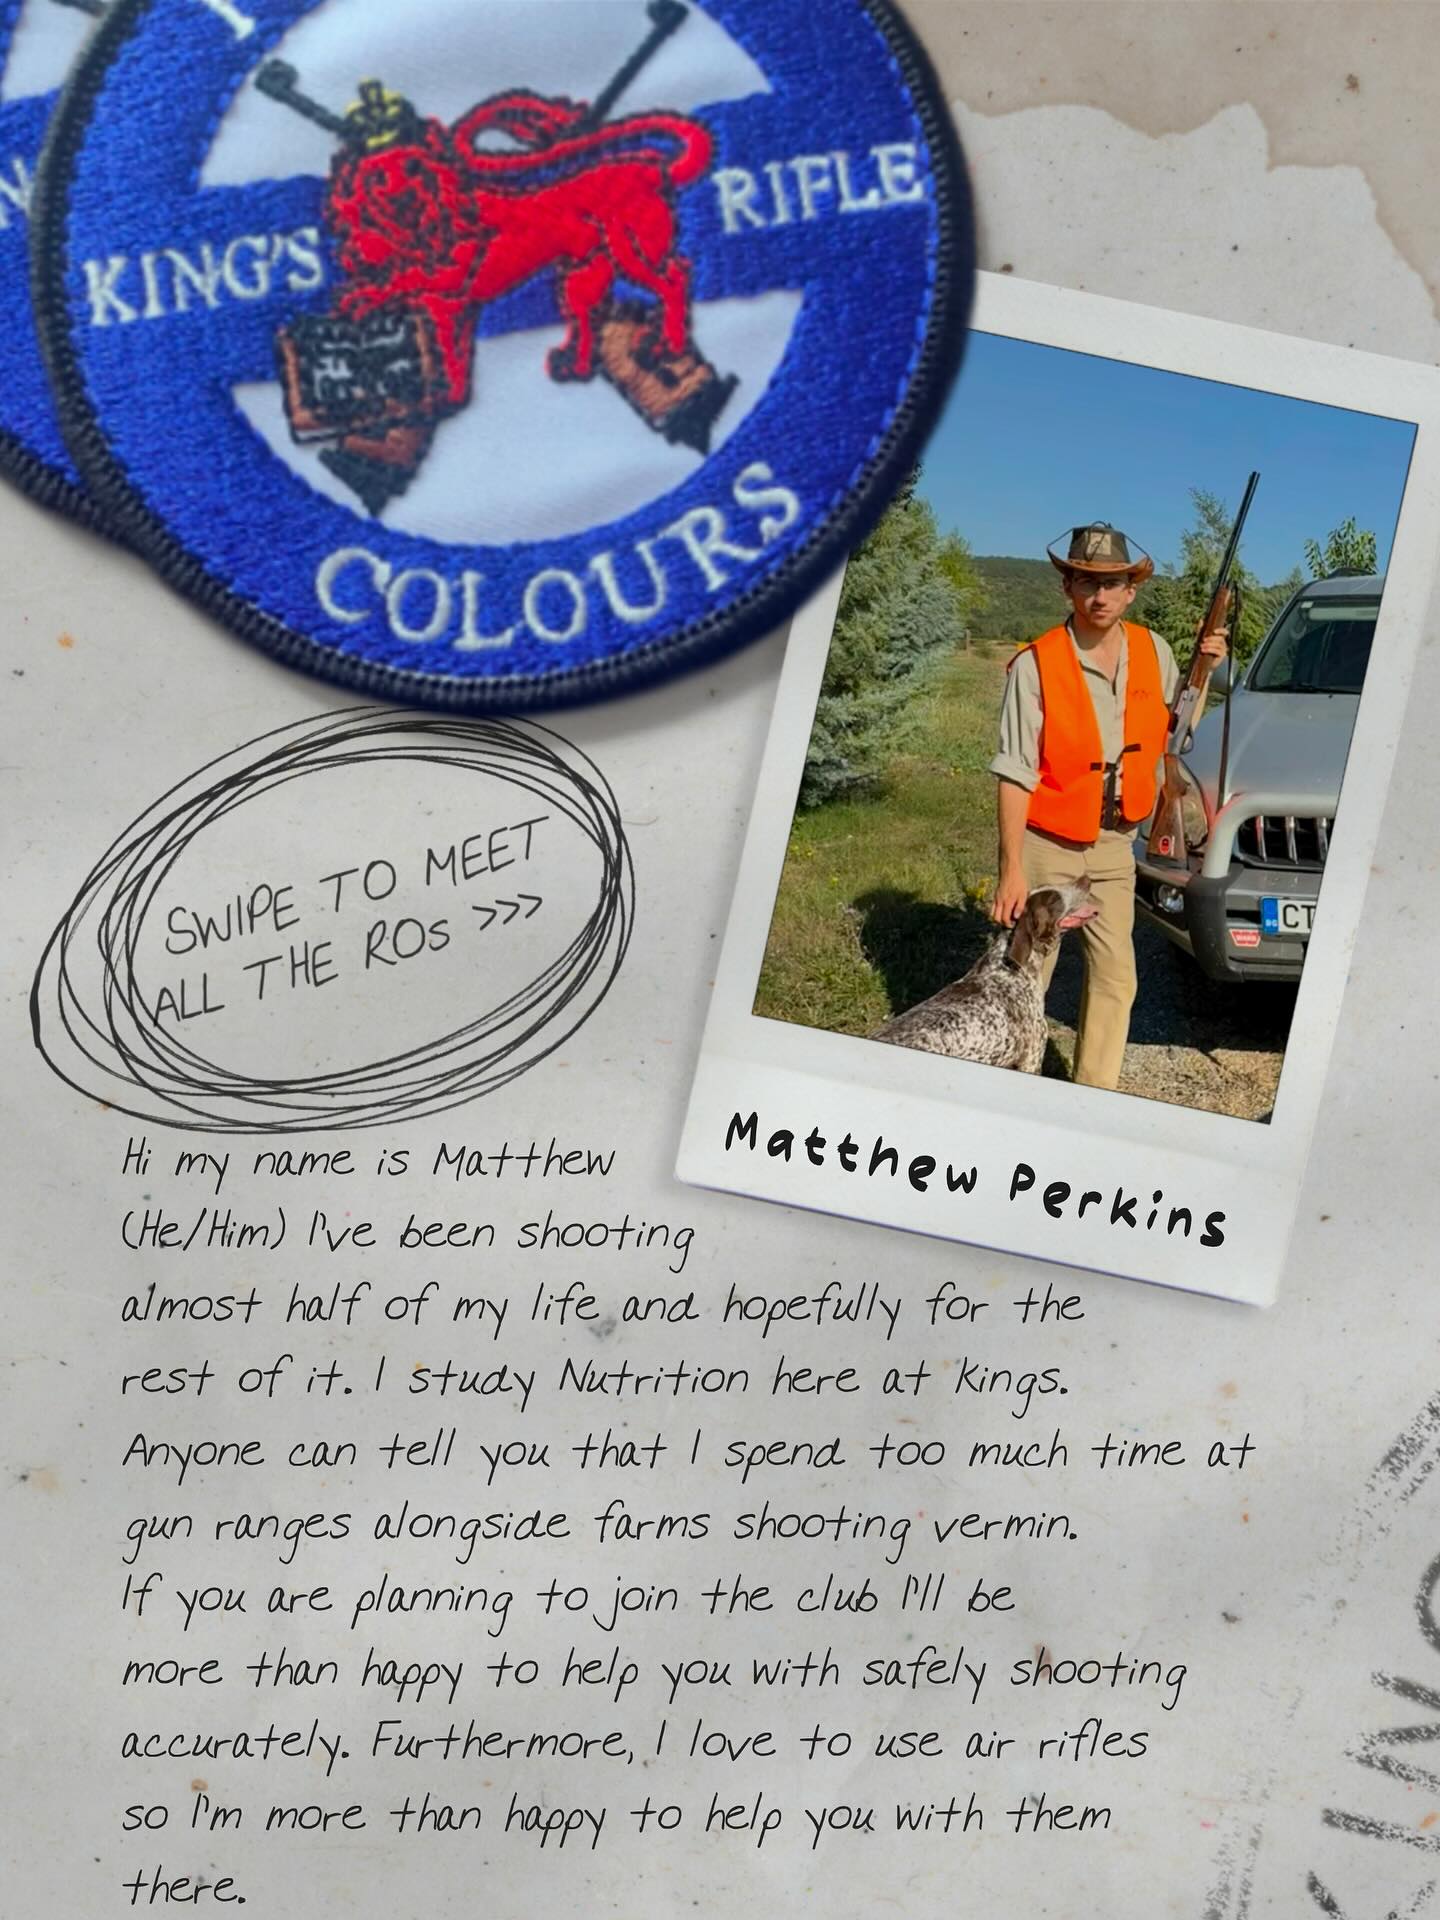 KING'S RIFLE
COLOURS
SWIPE TO MEET
ALL THE ROs >>>
CT
BG
WARN
Matthew Perkins
Hi my name is Matthew
(He/Him) I've been shooting
almost half of my life and hopefully for the
rest of it. I study Nutrition here at Kings.
Anyone can tell you that I spend too much time at
gun ranges alongside farms shooting vermin.
If you are planning to join the club I'll be
more than happy to help you with safely shooting
accurately. Furthermore, I love to use air rifles
so I'm more than happy to help you with them
there.